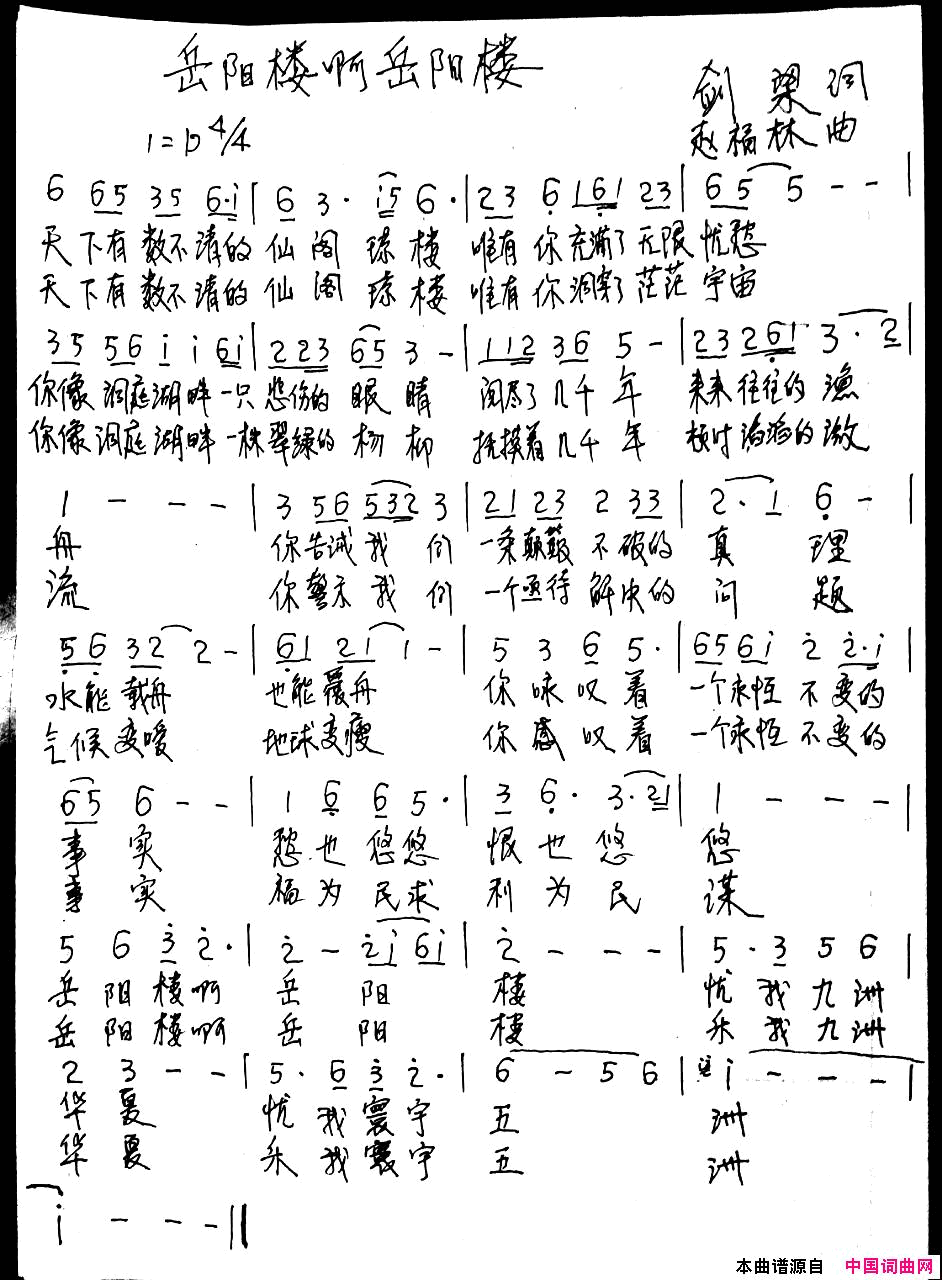 岳阳楼啊岳阳楼
剑梁词
1=D 4/4
赵福林曲
6 65 35 6·i | 6 3· i5 6· | 23 6 161 23 | 65 5 - - |
天下有数不清的 仙阁琼楼 唯有你充满了无限忧愁
天下有数不清的 仙阁琼楼 唯有你洞穿了茫茫宇宙
35 56 i i 6i | 223 65 3 - | 112 36 5 - | 23 261 3· 2 |
你像洞庭湖畔一只 悲伤的眼睛 阅尽了几千年 来来往往的渔
你像洞庭湖畔一株 翠绿的杨柳 抚摸着几千年 滔滔的激
1 - - - | 3 56 532 3 | 21 23 2 33 | 2· 1 6 - |
舟 你告诫我们 一条颠簸不破的 真理
流 你警示我们 一个亟待解决的 问题
56 32 2 - | 61 21 1 - | 5 3 6 5· | 65 6i 2 2·i |
水能载舟 也能覆舟 你咏叹着 一个永恒不变的
气候变暖 地球变瘦 你感叹着 一个永恒不变的
65 6 - - | 1 6 6 5· | 3 6· 3·21 | 1 - - - |
事实 愁也悠悠 恨也悠 悠
事实 福为民求 利为民 谋
5 6 3 2· | 2 - 2i 6i | 2 - - - | 5· 3 5 6 |
岳阳楼啊 岳阳 楼 忧我九洲
岳阳楼啊 岳阳 楼 乐我九洲
2 3 - - | 5· 6 3 2· | 6 - 5 6 | i - - - |
华夏 忧我寰宇 五 洲
华夏 乐我寰宇 五 洲
i - - - ||
本曲谱源自 中国词曲网